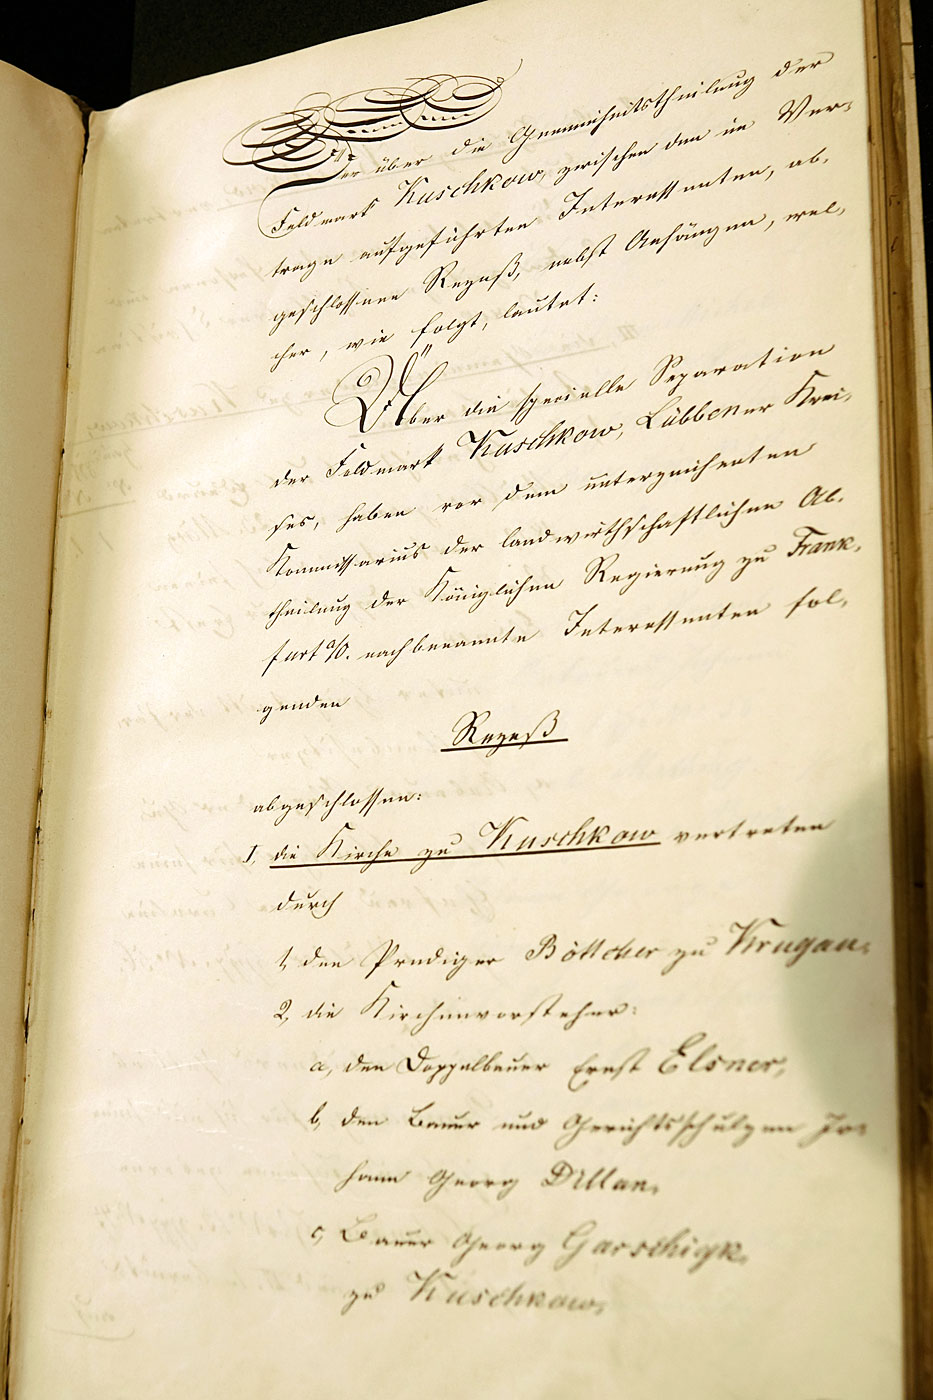 Der über die Gemeinheitstheilung der
Feldmark Kuschkow, zwischen den im Ver-
trage aufgeführten Interessenten, ab-
geschlossene Rezeß, nebst Anhängen, wel-
cher, wie folgt, lautet:
Über die specielle Separation
der Feldmark Kuschkow, Lübbener Krei-
ses, haben vor dem unterzeichneten
Kommissarius der landwirthschaftlichen Ab-
theilung der Königlichen Regierung zu Frank-
furt a/O. nachbenannte Interessenten fol-
genden
Rezeß
abgeschlossen:
I, die Kirche zu Kuschkow vertreten
durch
1, den Prediger Böttcher zu Krugau.
2, die Kirchenvorsteher:
a, den Doppelbauer Ernst Elsner,
b, den Bauer und Gerichtsschulzen Jo-
hann Georg Dullan,
c, Bauer Georg Garschigk,
zu Kuschkow,